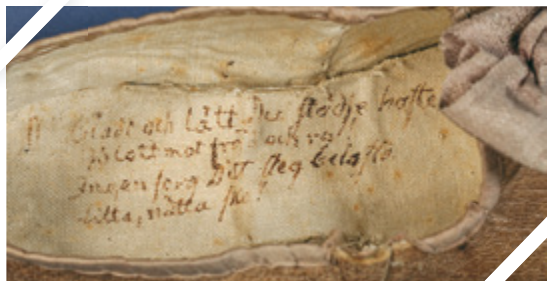 Gladt och lätt Du städje hafte
så lätt mot frö och
Ingen sorg Ditt steg belaste
Lilla, nätta sko!